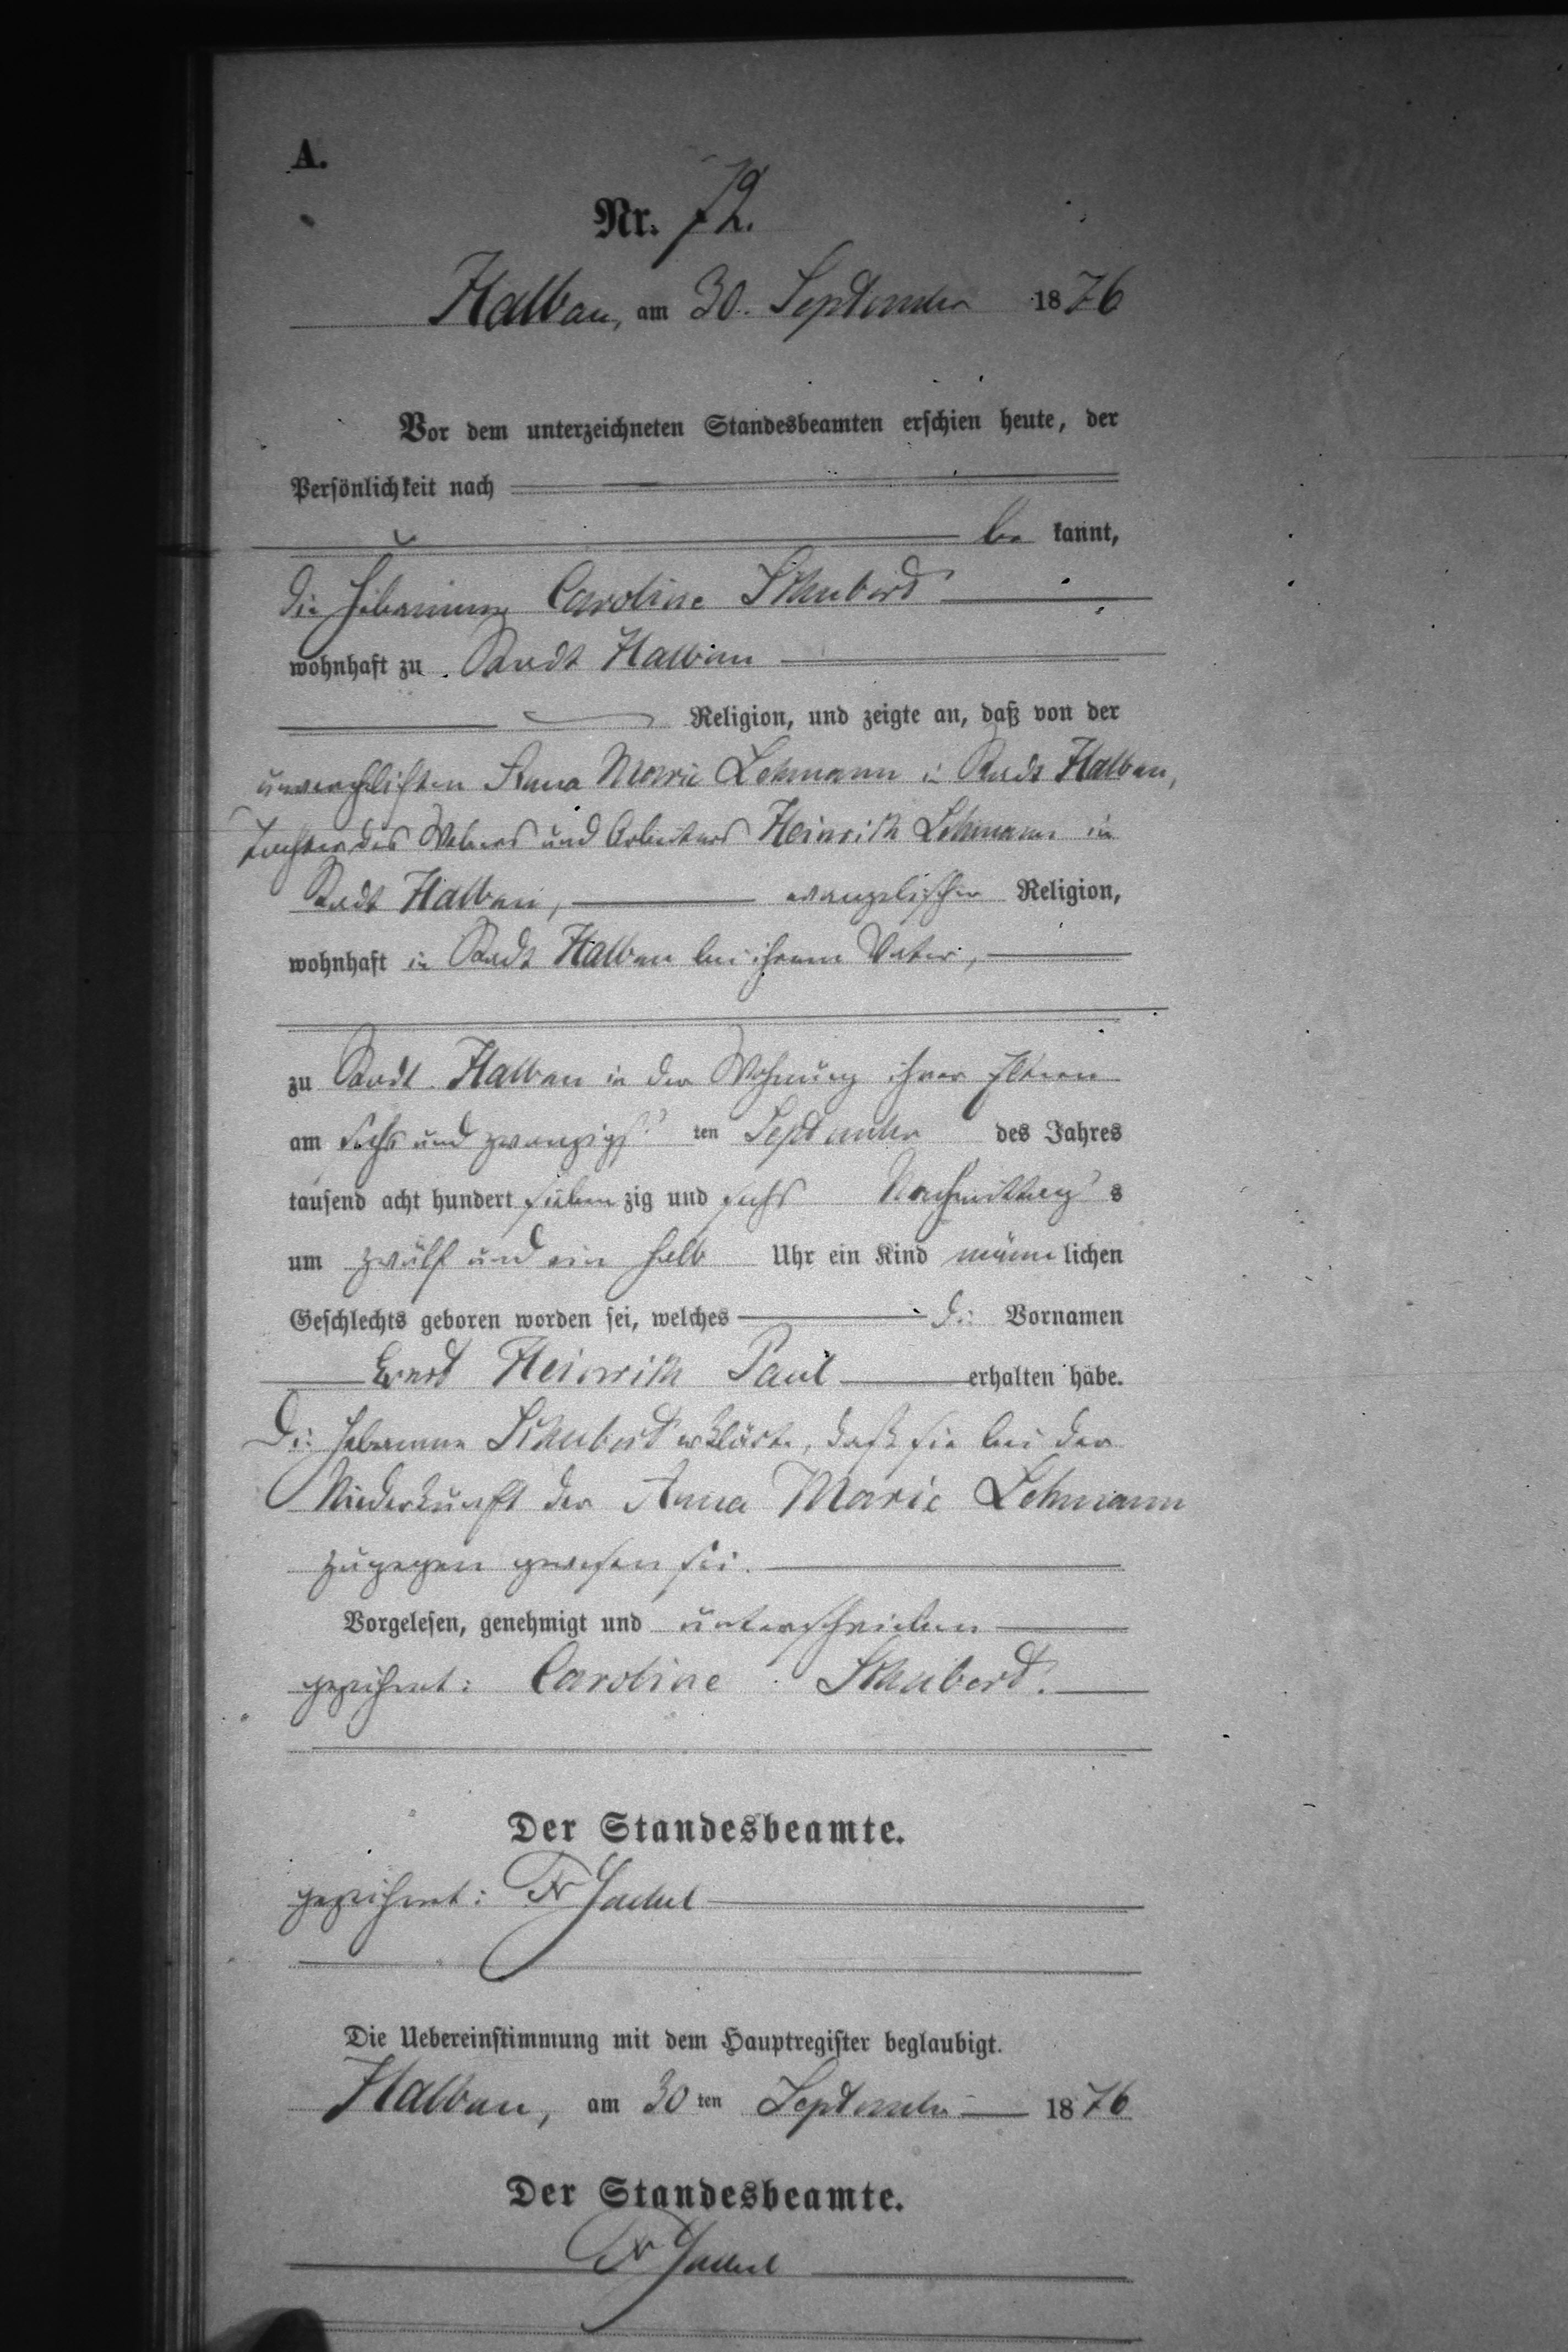 A.
Nr. 72.
Halbau, am 30. September 1876
Vor dem unterzeichneten Standesbeamten erschien heute, der
Persönlichkeit nach
be kannt,
die Hebamme Caroline Schubert
wohnhaft zu Stadt Halbau
Religion, und zeigte an, daß von der
unverehelichten Anna Marie Lehmann in Stadt Halbau,
Tochter des Webers und Arbeiters Heinrich Lehmann in
Stadt Halbau, evangelischer Religion,
wohnhaft in Stadt Halbau bei ihrem Vater,
zu Stadt Halbau in der Wohnung ihrer Eltern
am sechs und zwanzigs ten September des Jahres
tausend acht hundert sieben zig und sechs Nachmittag s
um zwölf und ein halb Uhr ein Kind männ lichen
Geschlechts geboren worden sei, welches die Vornamen
Ernst Heinrich Paul erhalten habe.
Die Hebamme Schubert erklärte, daß sie bei der
Niederkunft der Anna Marie Lehmann
zugegen gewesen sei.
Vorgelesen, genehmigt und unterschrieben
gezeichnet: Caroline Schubert.
Der Standesbeamte.
gezeichnet: Fr
Die Uebereinstimmung mit dem Hauptregister beglaubigt.
Halbau, am 30 ten September 1876
Der Standesbeamte.
Fr